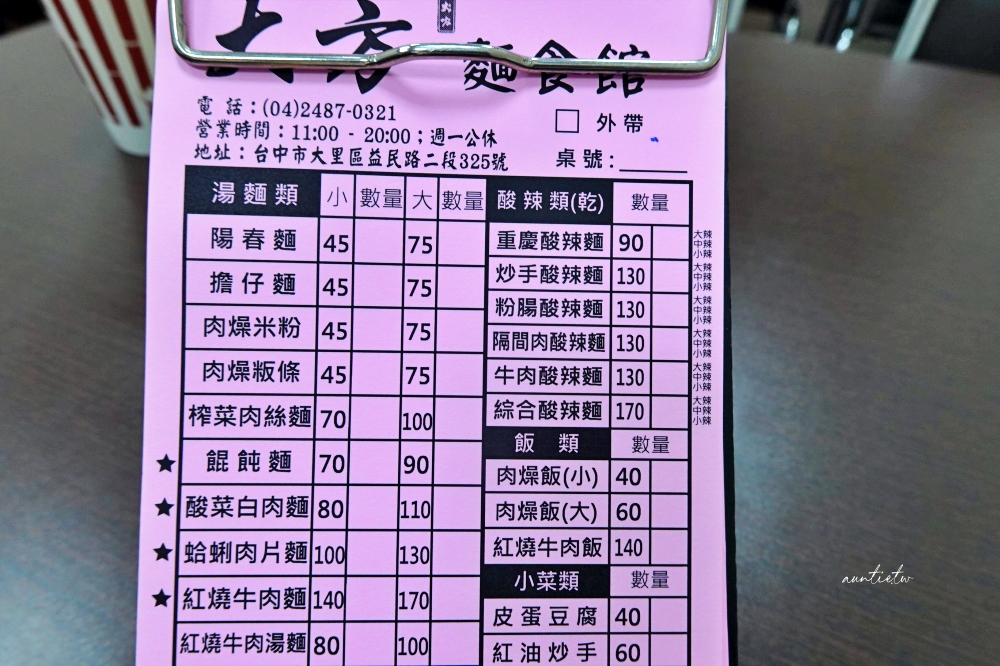 大方 麵食館
電話：(04)2487-0321
營業時間：11:00 - 20:00；週一公休
地址：台中市大里區益民路二段325號
□ 外帶
桌號：
湯麵類 小 數量 大 數量
陽春麵 45 75
擔仔麵 45 75
肉燥米粉 45 75
肉燥粄條 45 75
榨菜肉絲麵 70 100
★ 餛飩麵 70 90
★ 酸菜白肉麵 80 110
★ 蛤蜊肉片麵 100 130
★ 紅燒牛肉麵 140 170
紅燒牛肉湯麵 80 100
酸辣類(乾) 數量
重慶酸辣麵 90 大辣 中辣 小辣
炒手酸辣麵 130 大辣 中辣 小辣
粉腸酸辣麵 130 大辣 中辣 小辣
隔間肉酸辣麵 130 大辣 中辣 小辣
牛肉酸辣麵 130 大辣 中辣 小辣
綜合酸辣麵 170 大辣 中辣 小辣
飯類 數量
肉燥飯(小) 40
肉燥飯(大) 60
紅燒牛肉飯 140
小菜類 數量
皮蛋豆腐 40
紅油炒手 60
auntietw